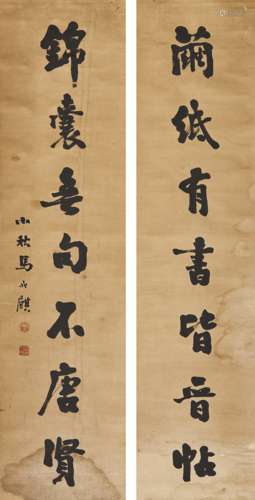 繭紙有書皆晉帖
錦囊無句不唐賢
秋馬麒